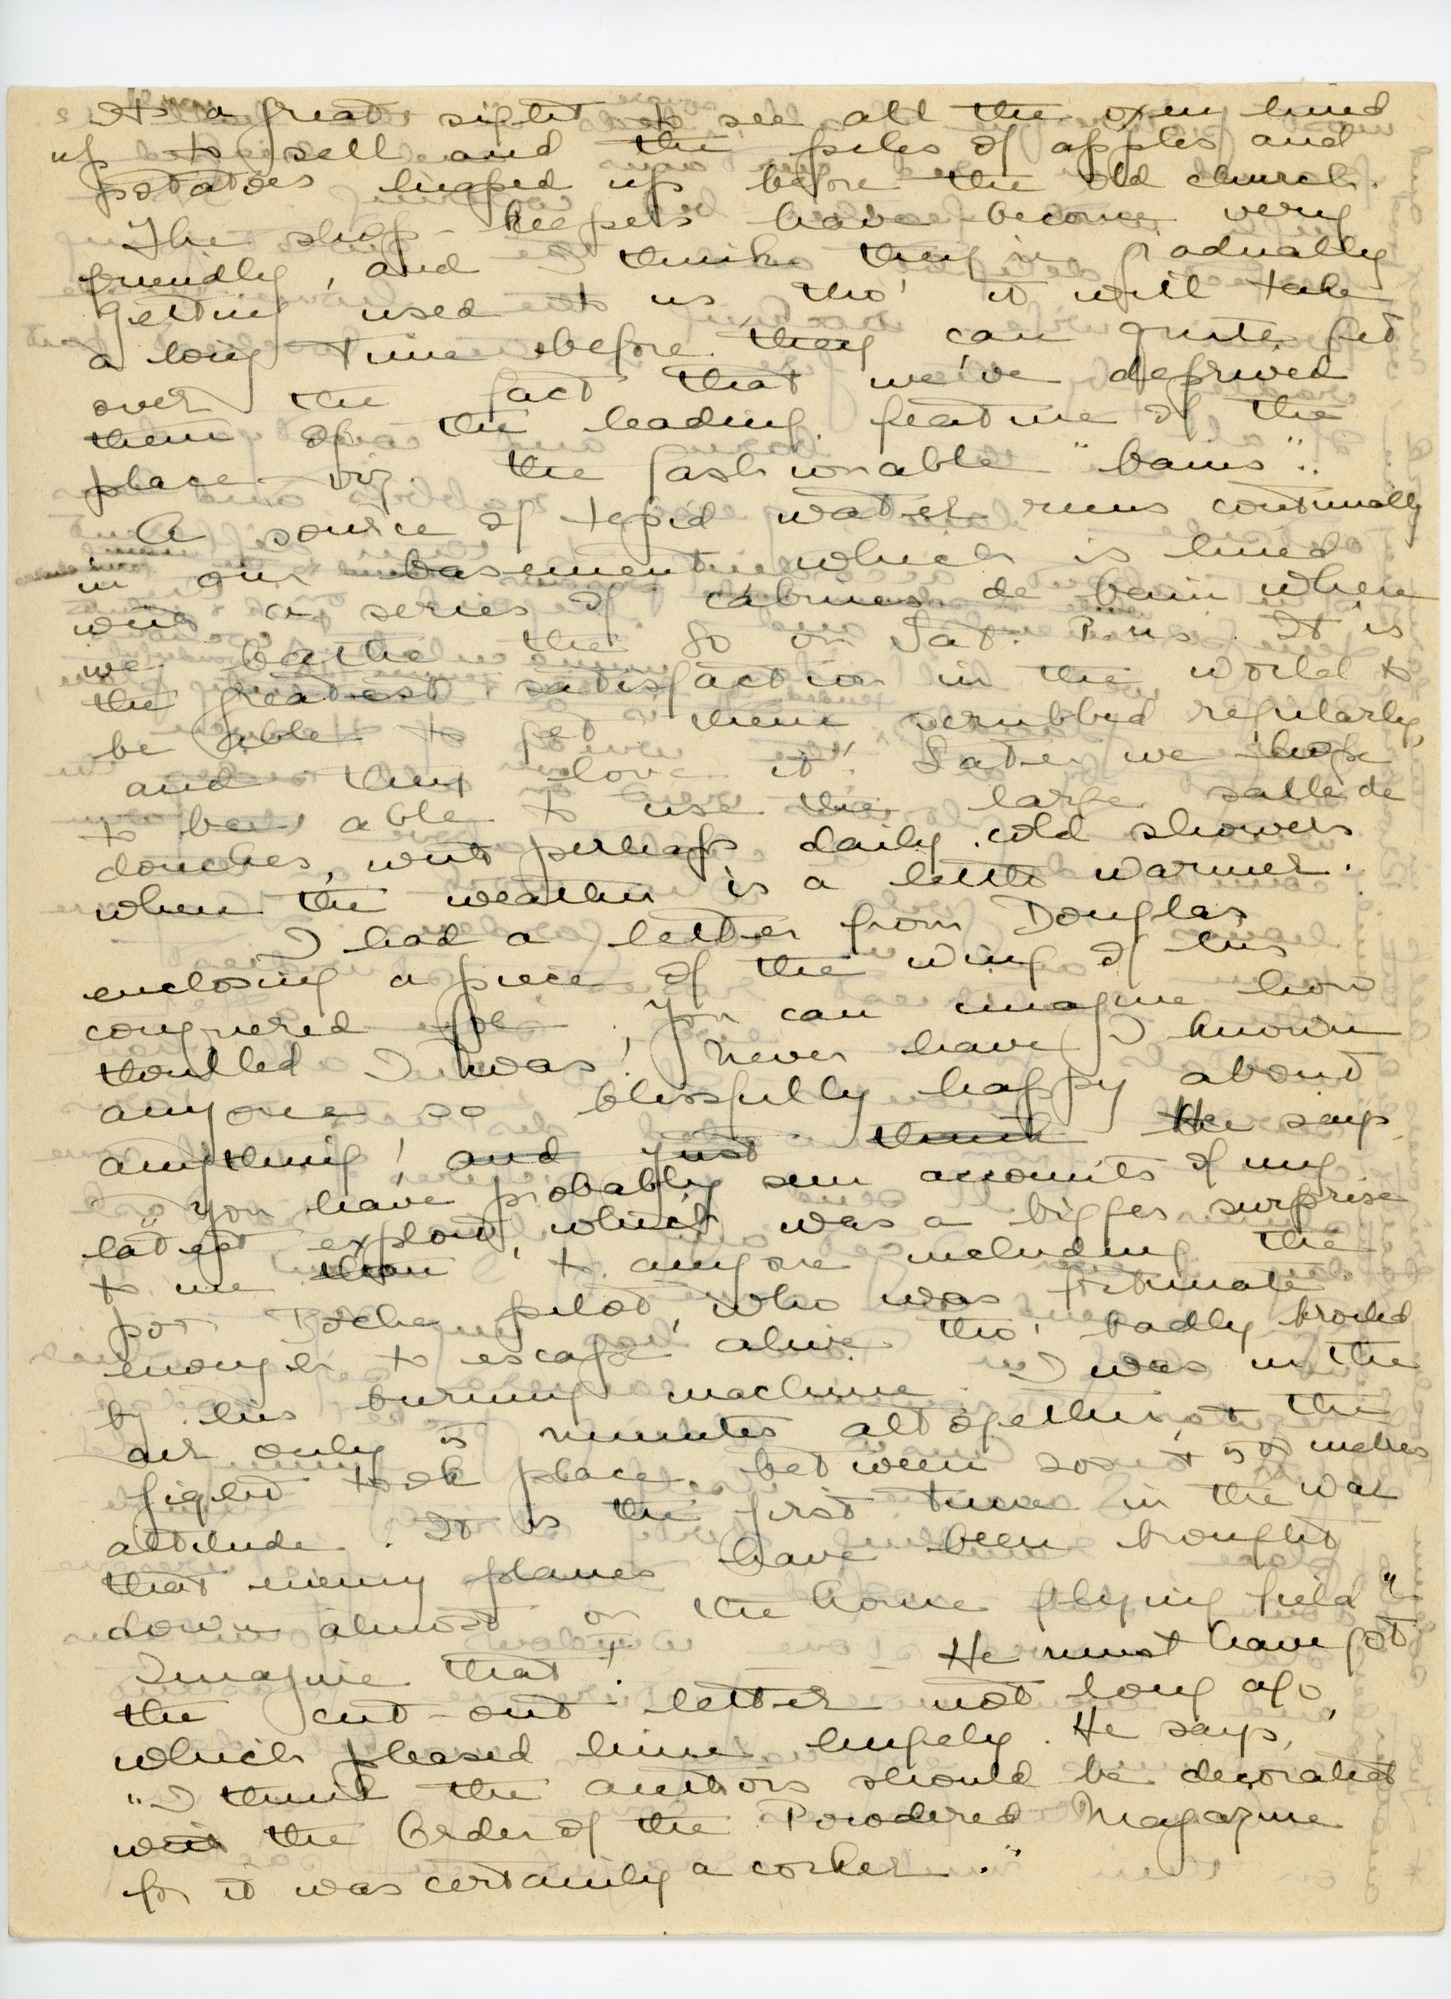 It's a great sight to see all the oxen lined
up to sell and the piles of apples and
potatoes heaped up before the old church.
The shop-keepers have become very
friendly, and I think they're gradually
getting used to us tho' it will take
a long time before they can quite get
over the fact that we've deprived
them of the leading feature of the
place viz. the fashionable "bains".
A source of tepid water runs continually
in our basement which is lined
with a series of cabines de bain where
we bathe the 80 on Sat. P.M.s. It is
the greatest satisfaction in the world to
be able to get them scrubbed regularly,
and they love it! Later we hope
to be able to use the large salle de
douches, with perhaps daily cold showers
when the weather is a little warmer.
I had a letter from Douglas
enclosing a piece of the wing of his
conquered foe. You can imagine how
thrilled I was! Never have I known
anyone so blissfully happy about
anything! and just think He says
"You have probably seen accounts of my
latest exploit, which was a bigger surprise
to me than to anyone including the
poor Boche pilot, who was fortunate
enough to escape alive tho' badly broiled
by his burning machine. I was in the
air only 5 minutes altogether, + the
fight took place between 200 + 500 metres
altitude. It is the first time in the war
that enemy planes have been brought
down almost on the home flying field".
Imagine that! He must have got
the cut-out letter not long ago,
which pleased him hugely. He says,
"I think the authors should be decorated
with the Order of the Powdered Magazine
for it was certainly a corker."